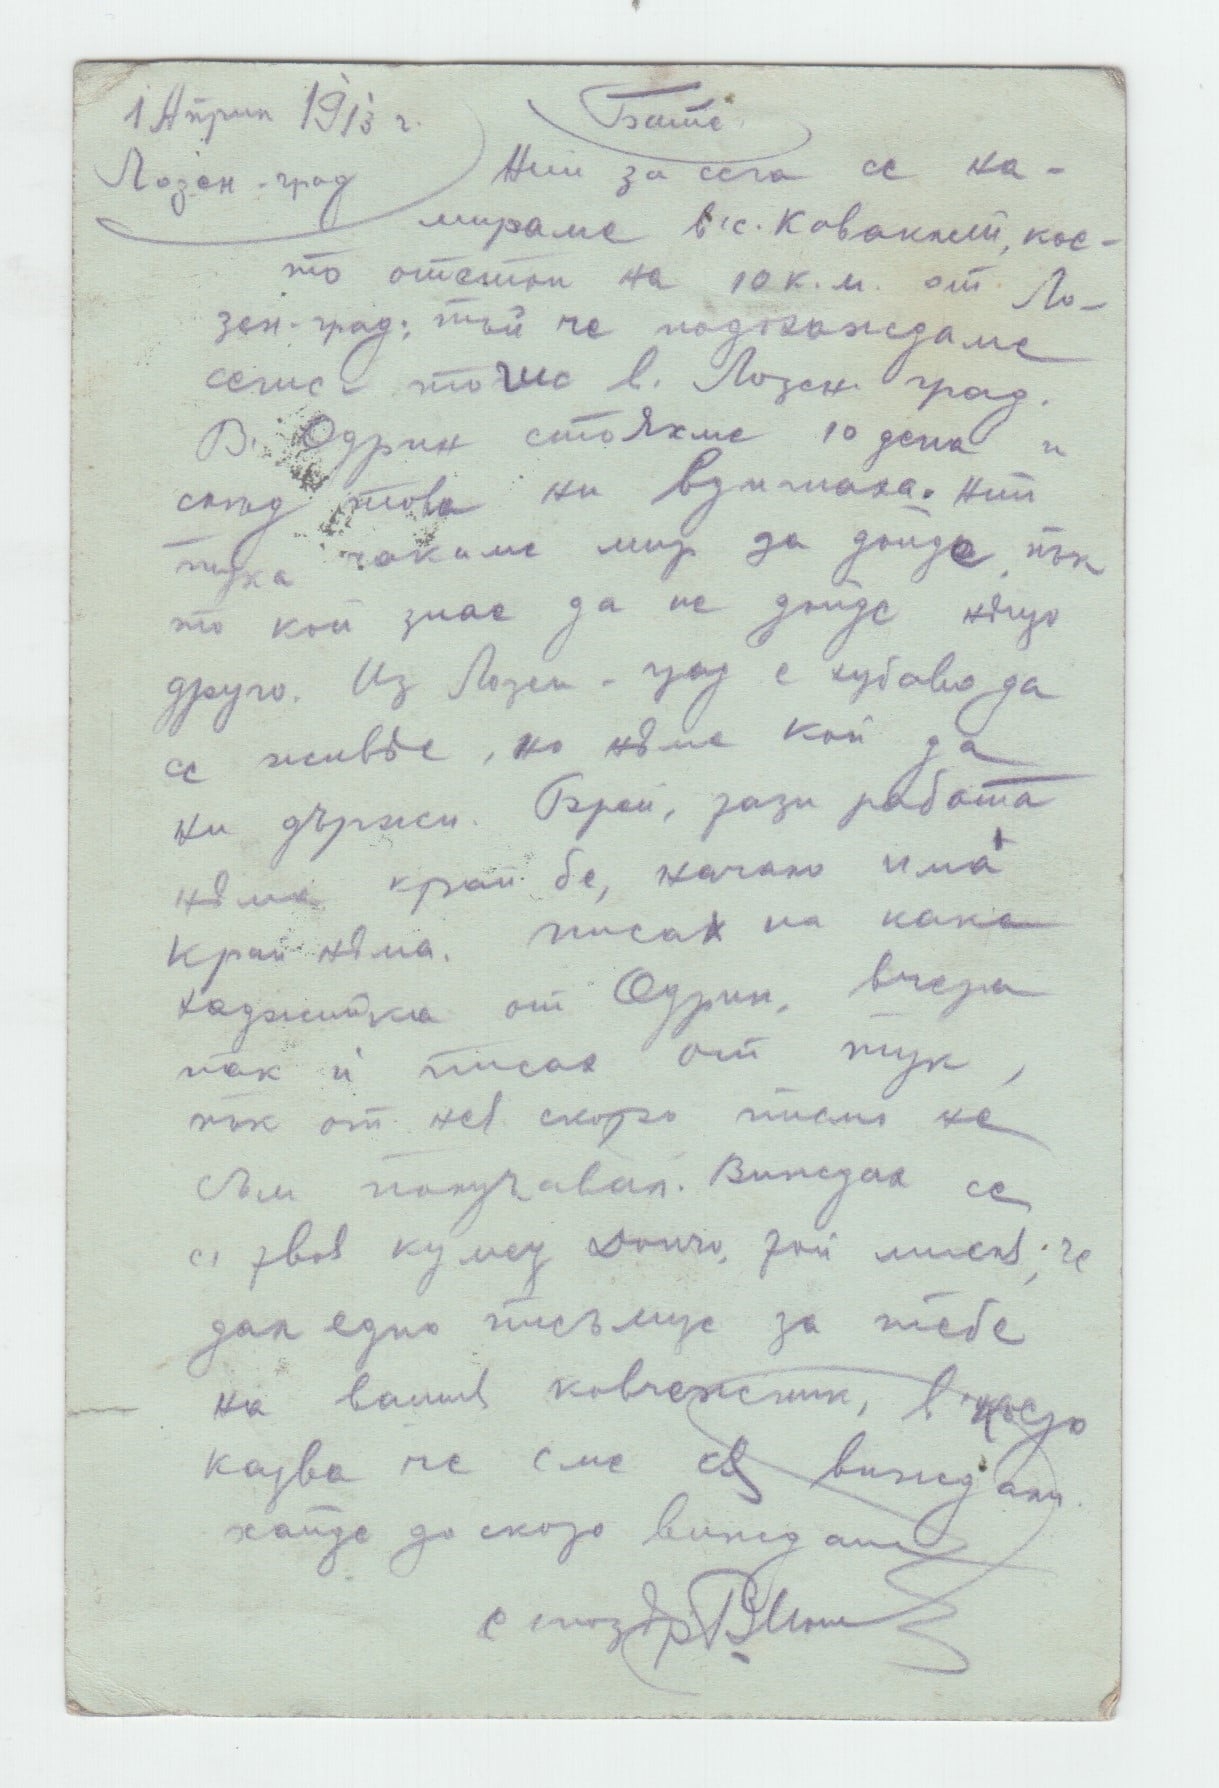 1 Април 1913 г.
Лозен-град
Бате
Ний за сега се на-
мираме в с. Ковакли, кое-
то отстои на 10 к.м. от Ло-
зен-град; тъй че подохождаме
в. Лозен град.
В. Одрин стояхме 10 дена и
след това ни вдигнаха. Ний
тука чакаме мир да дойде, пък
то кой знае да не дойде нѣщо
друго. Из Лозен-град е хубаво да
се живѣе, но нѣма кой да
ни държи. Бърей, тази работа
нѣма край бе, начало има
край нѣма. Писах на кака
хаджийка от Одрин, вчера
пак ѝ писах от тук,
пък от неѣ скоро писмо не
съм получавал. Виждах се
с твоя Дончо, той че
дал едно писъмце за тебе
на вашиѣ ковчежник, в което
казва че сме се виждали.
хайде до скоро виждане
с поздр.